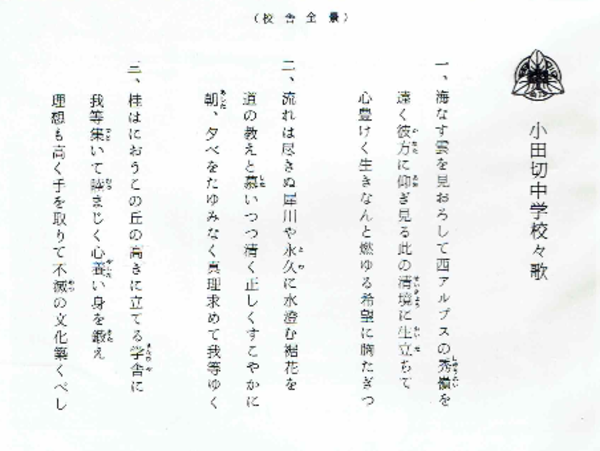 (校舎全景)
小田切中学校々歌
一、海なす雲を見おろして西アルプスの秀嶺を
遠く彼方に仰ぎ見る此の清境に生立ちて
心豊けく生きなんと燃ゆる希望に胸たぎつ
二、流れは尽きぬ犀川や永久に水澄む裾花を
道の教えと慕いつつ清く正しくすこやかに
朝、夕べをたゆみなく真理求めて我等ゆく
三、桂はにおうこの丘の高きに立てる学舎に
我等集いて睦まじく心養い身を鍛え
理想も高く手を取りて不滅の文化築くべし